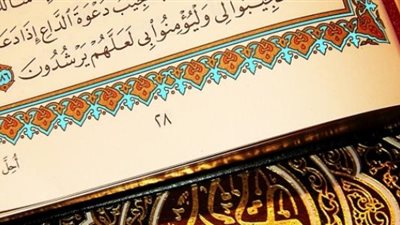 أُجِيبُ دَعْوَةَ الدَّاعِ إِذَا دَعَا
ـجِيبُوا لِي وَلْيُؤْمِنُوا بِي لَعَلَّهُمْ يَرْشُدُونَ
٢٨
أُحِلَّ